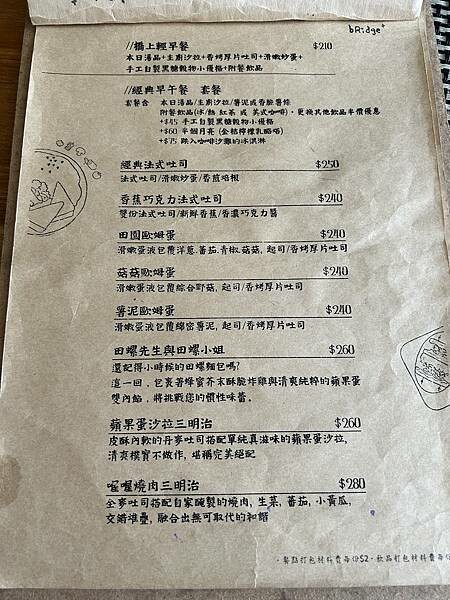 bRidge+
//橋上輕早餐 $210
本日湯品+主廚沙拉+香烤厚片吐司+滑嫩炒蛋+
手工自製黑糖穀物小優格+附餐飲品
//經典早午餐 套餐
套餐含 本日湯品/主廚沙拉/薯泥或香脆薯條
附餐飲品(冰/熱 紅茶 或 美式咖啡)。更換其他飲品半價優惠
+$45 手工自製黑糖穀物小優格
+$60 半個月亮 (金桔檸檬乳酪塔)
+$75 跌入咖啡沙灘的冰淇淋
經典法式吐司 $250
法式吐司/滑嫩炒蛋/香煎培根
香蕉巧克力法式吐司 $240
雙份法式吐司/新鮮香蕉/香濃巧克力醬
田園歐姆蛋 $240
滑嫩蛋液包覆洋蔥,蕃茄,青椒,菇菇,起司/香烤厚片吐司
菇菇歐姆蛋 $240
滑嫩蛋液包覆綜合野菇,起司/香烤厚片吐司
薯泥歐姆蛋 $240
滑嫩蛋液包覆綿密薯泥,起司/香烤厚片吐司
田螺先生與田螺小姐 $260
還記得小時候的田螺麵包嗎?
這一回,包裹著蜂蜜芥末酥脆炸雞與清爽純粹的蘋果蛋
雙內餡,將挑戰您的慣性味蕾。
蘋果蛋沙拉三明治 $260
皮酥內軟的丹麥吐司搭配單純真滋味的蘋果蛋沙拉,
清爽樸實不做作,堪稱完美絕配
喔喔燒肉三明治 $280
全麥吐司搭配自家醃製的燒肉,生菜,蕃茄,小黃瓜,
交錯堆疊,融合出無可取代的和諧
·餐點打包材料費每份$2·飲品打包材料費每份